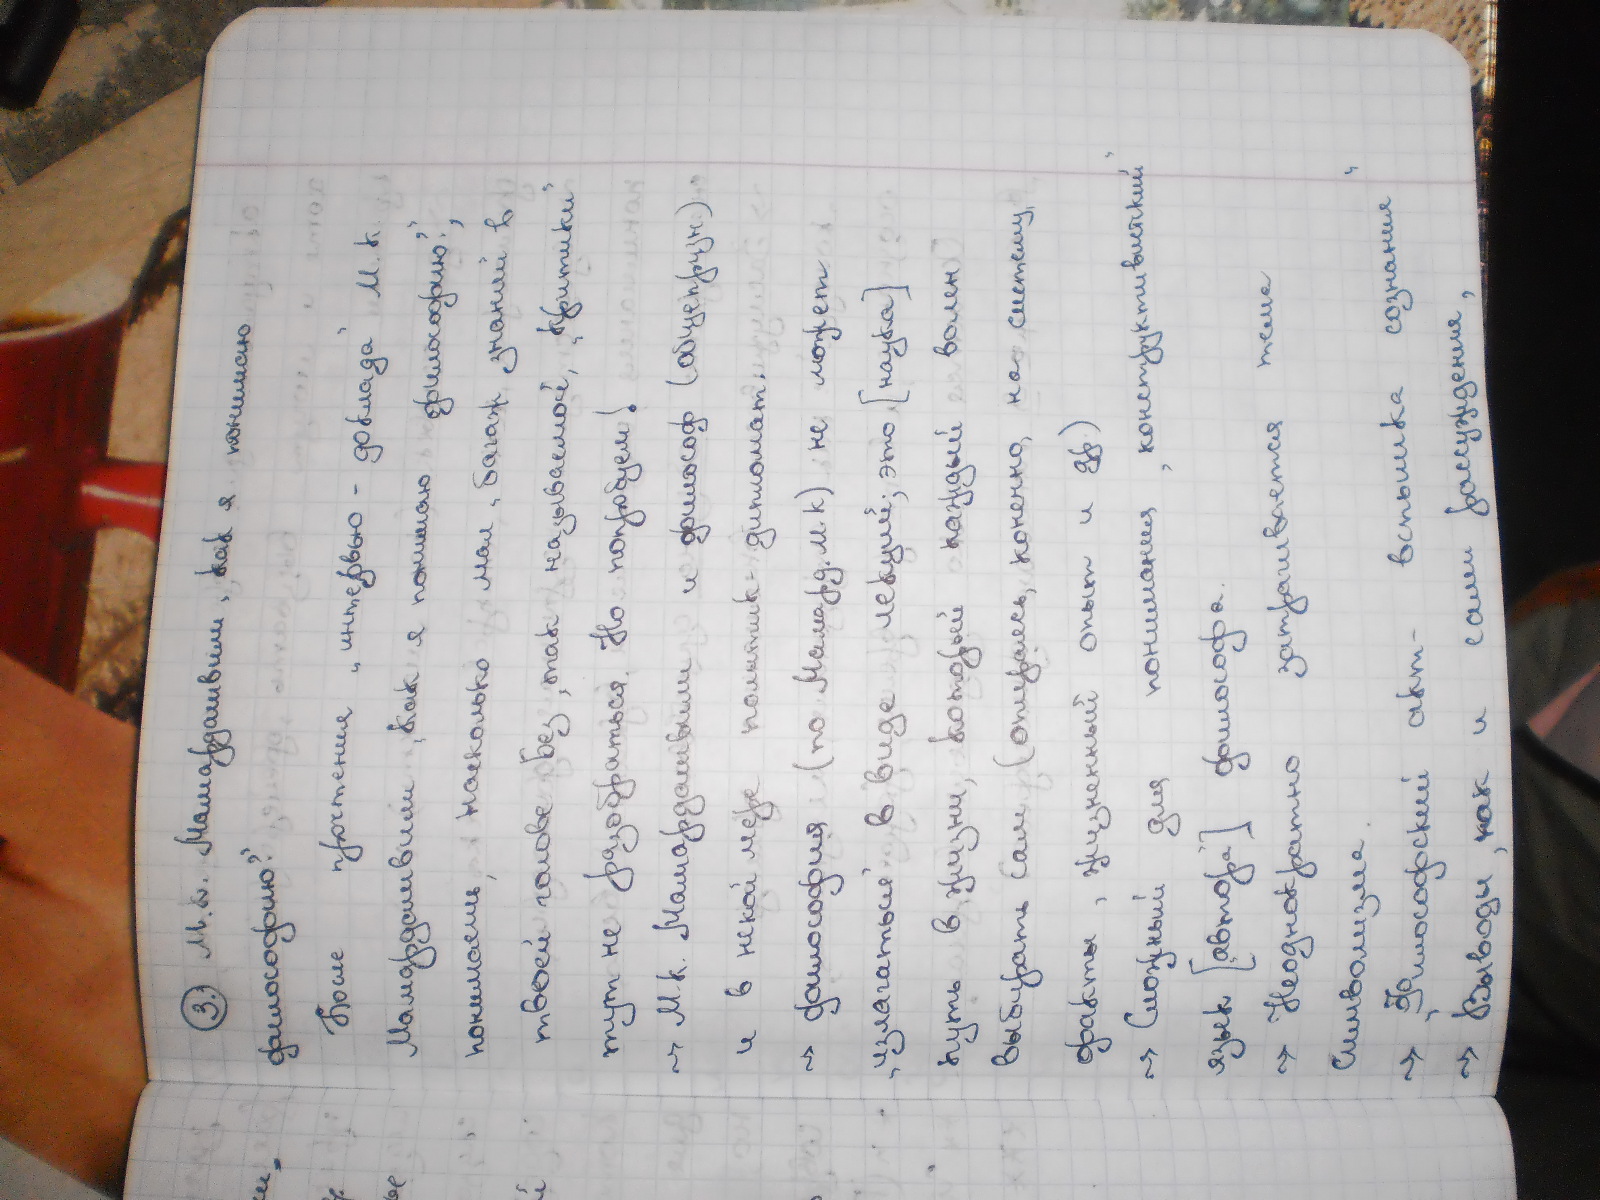 3. М.К. Мамардашвили „Как я понимаю
философию?"
После прочтения „интервью - доклада" М.К.
Мамардашвили „Как я понимаю философию?",
понимаешь, насколько мал „багаж" знаний в
твоей голове. Без, так называемой, „Критики"
тут не разобраться. Но попробуем!
→ М.К. Мамардашвили и философ (общепризн)
и в некой мере политик - дипломат.
→ философия (по Мамард. М.К) не может
„излагаться" в виде лекций; это [наука]
путь в жизни, который каждый волен
выбирать сам (опираясь, конечно, на систему,
факты, жизненный опыт и др.)
→ Сложный для понимания, „конструктивисткий"
язык [„автора"] философа.
→ Неоднократно затрагивается тема
Символизма.
→ „Философский акт - вспышка сознания"
→ Выводы, как и сами рассуждения,
ми,